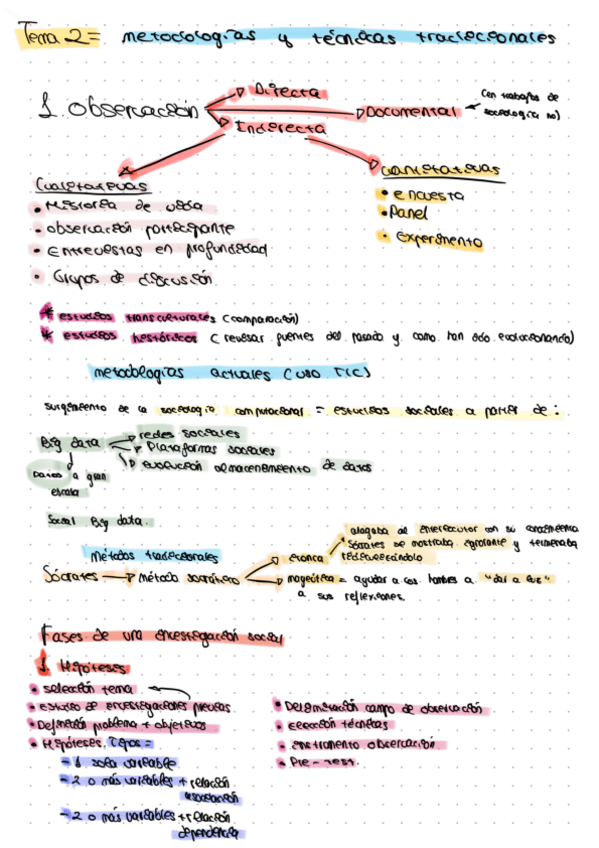 Tema 2= metodologías y técnicas tradicionales
1. Observación
Directa
Documental
(en trabajos de
sociología no)
Indirecta
Cualitativas
• Historia de vida
• observación participante
• Entrevistas en profundidad
• Grupos de discusión
Cuantitativas
• encuesta
• Panel
• experimento
* estudios transculturales (comparación)
* estudios históricos (revisar fuentes del pasado y como han ido evolucionando)
metodologías actuales (uso TIC)
surgimiento de la sociología computacional = estudios sociales a partir de:
Big data
redes sociales
Plataformas sociales
evolución almacenamiento de datos
Datos a gran
escala
Social Big data.
Métodos tradicionales
Sócrates → método socrático
ironía
alagaba al interlocutor con su
Sócrates se mostraba ignorante y terminaba
ridiculizándolo
mayéutica = ayudar a los hombres a "dar a luz"
a sus reflexiones.
Fases de una investigación social
1. Hipótesis
• selección tema
• estudio de investigaciones previas
• Definición problema + objetivos
• Hipótesis. Tipos =
- 1 sola variable
- 2 o más variables + relación
asociación
- 2 o más variables + relación
dependencia
• Delimitación campo de observación
• elección técnicas
• instrumento observación
• Pre-test.